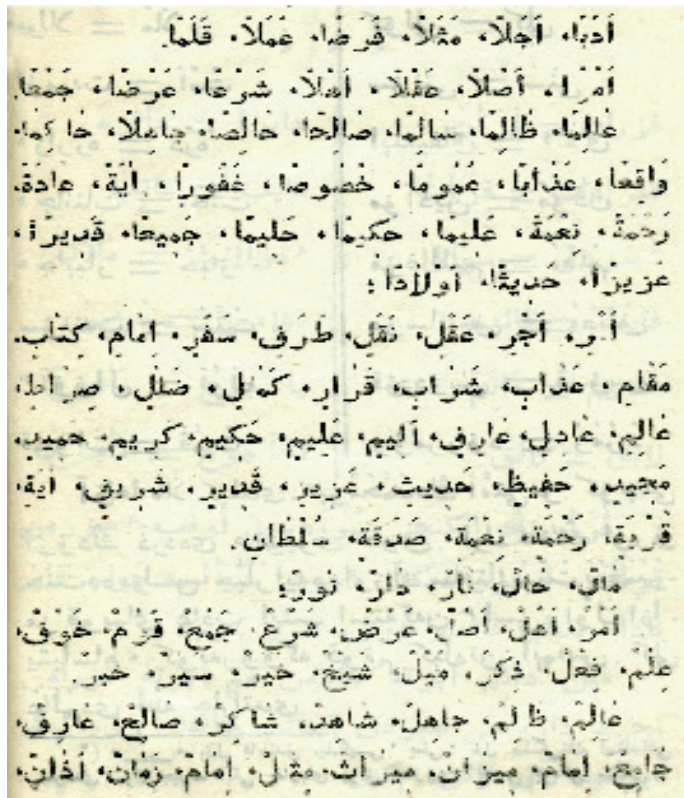 أَدَبًا، أَجَلاً، مَثَلاً، فَرَضًا، عَمَلاً، قَلَمًا.
أَمْرًا، أَصْلاً، عَقْلاً، أَهْلاً، شَرْعًا، عَرْضًا، جَمْعًا.
عَالِمًا، ظَالِمًا، سَالِمًا، صَالِحًا، خَالِصًا، جَاهِلاً، حَاكِمًا،
وَاقِعًا، عَذَابًا، عُمُومًا، خُصُوصًا، غَفُورًا، اٰيَةً، عَادَةً.
رَحْمَةً، نِعْمَةً، عَلِيمًا، حَكِيمًا، حَلِيمًا، جَمِيعًا، قَدِيرًا،
عَزِيزًا، حَدِيثًا، أَوْلَادًا؛
أَجْرِ، عَقْلِ، نَقْلِ، طَرَفِ، سَفَرِ، اِمَامِ، كِتَابِ.
مَقَامِ، عَذَابِ، شَرَابِ، قَرَارِ، كَمَالِ، صِرَاطِ،
عَالِمِ، عَادِلِ، عَارِفِ، أَلِيمِ، عَلِيمِ، حَكِيمِ، كَرِيمِ، حَمِيدِ،
مَجِيدِ، حَفِيظِ، حَدِيثِ، عَزِيزِ، قَدِيرِ، شَرِيفِ، اٰيَةِ،
قَرْيَةِ، رَحْمَةِ، نِعْمَةِ، صَدَقَةِ، سُلْطَانِ.
مَالٌ، حَالٌ، نَارٌ، دَارٌ، نُورٌ؛
أَمْرٌ، أَهْلٌ، أَصْلٌ، عَرْضٌ، شَرْعٌ، جَمْعٌ، قَوْمٌ، خَوْفٌ،
عِلْمٌ، فِعْلٌ، ذِكْرٌ، مَيْلٌ، شَيْخٌ، خَيْرٌ، سَيْرٌ،
عَالِمٌ، ظَالِمٌ، جَاهِلٌ، شَاهِدٌ، شَاكِرٌ، صَالِحٌ، عَارِفٌ،
جَامِعٌ، اِمَامٌ، مِيزَانٌ، مِيرَاثٌ، زَمَانٌ، أَذَانٌ،